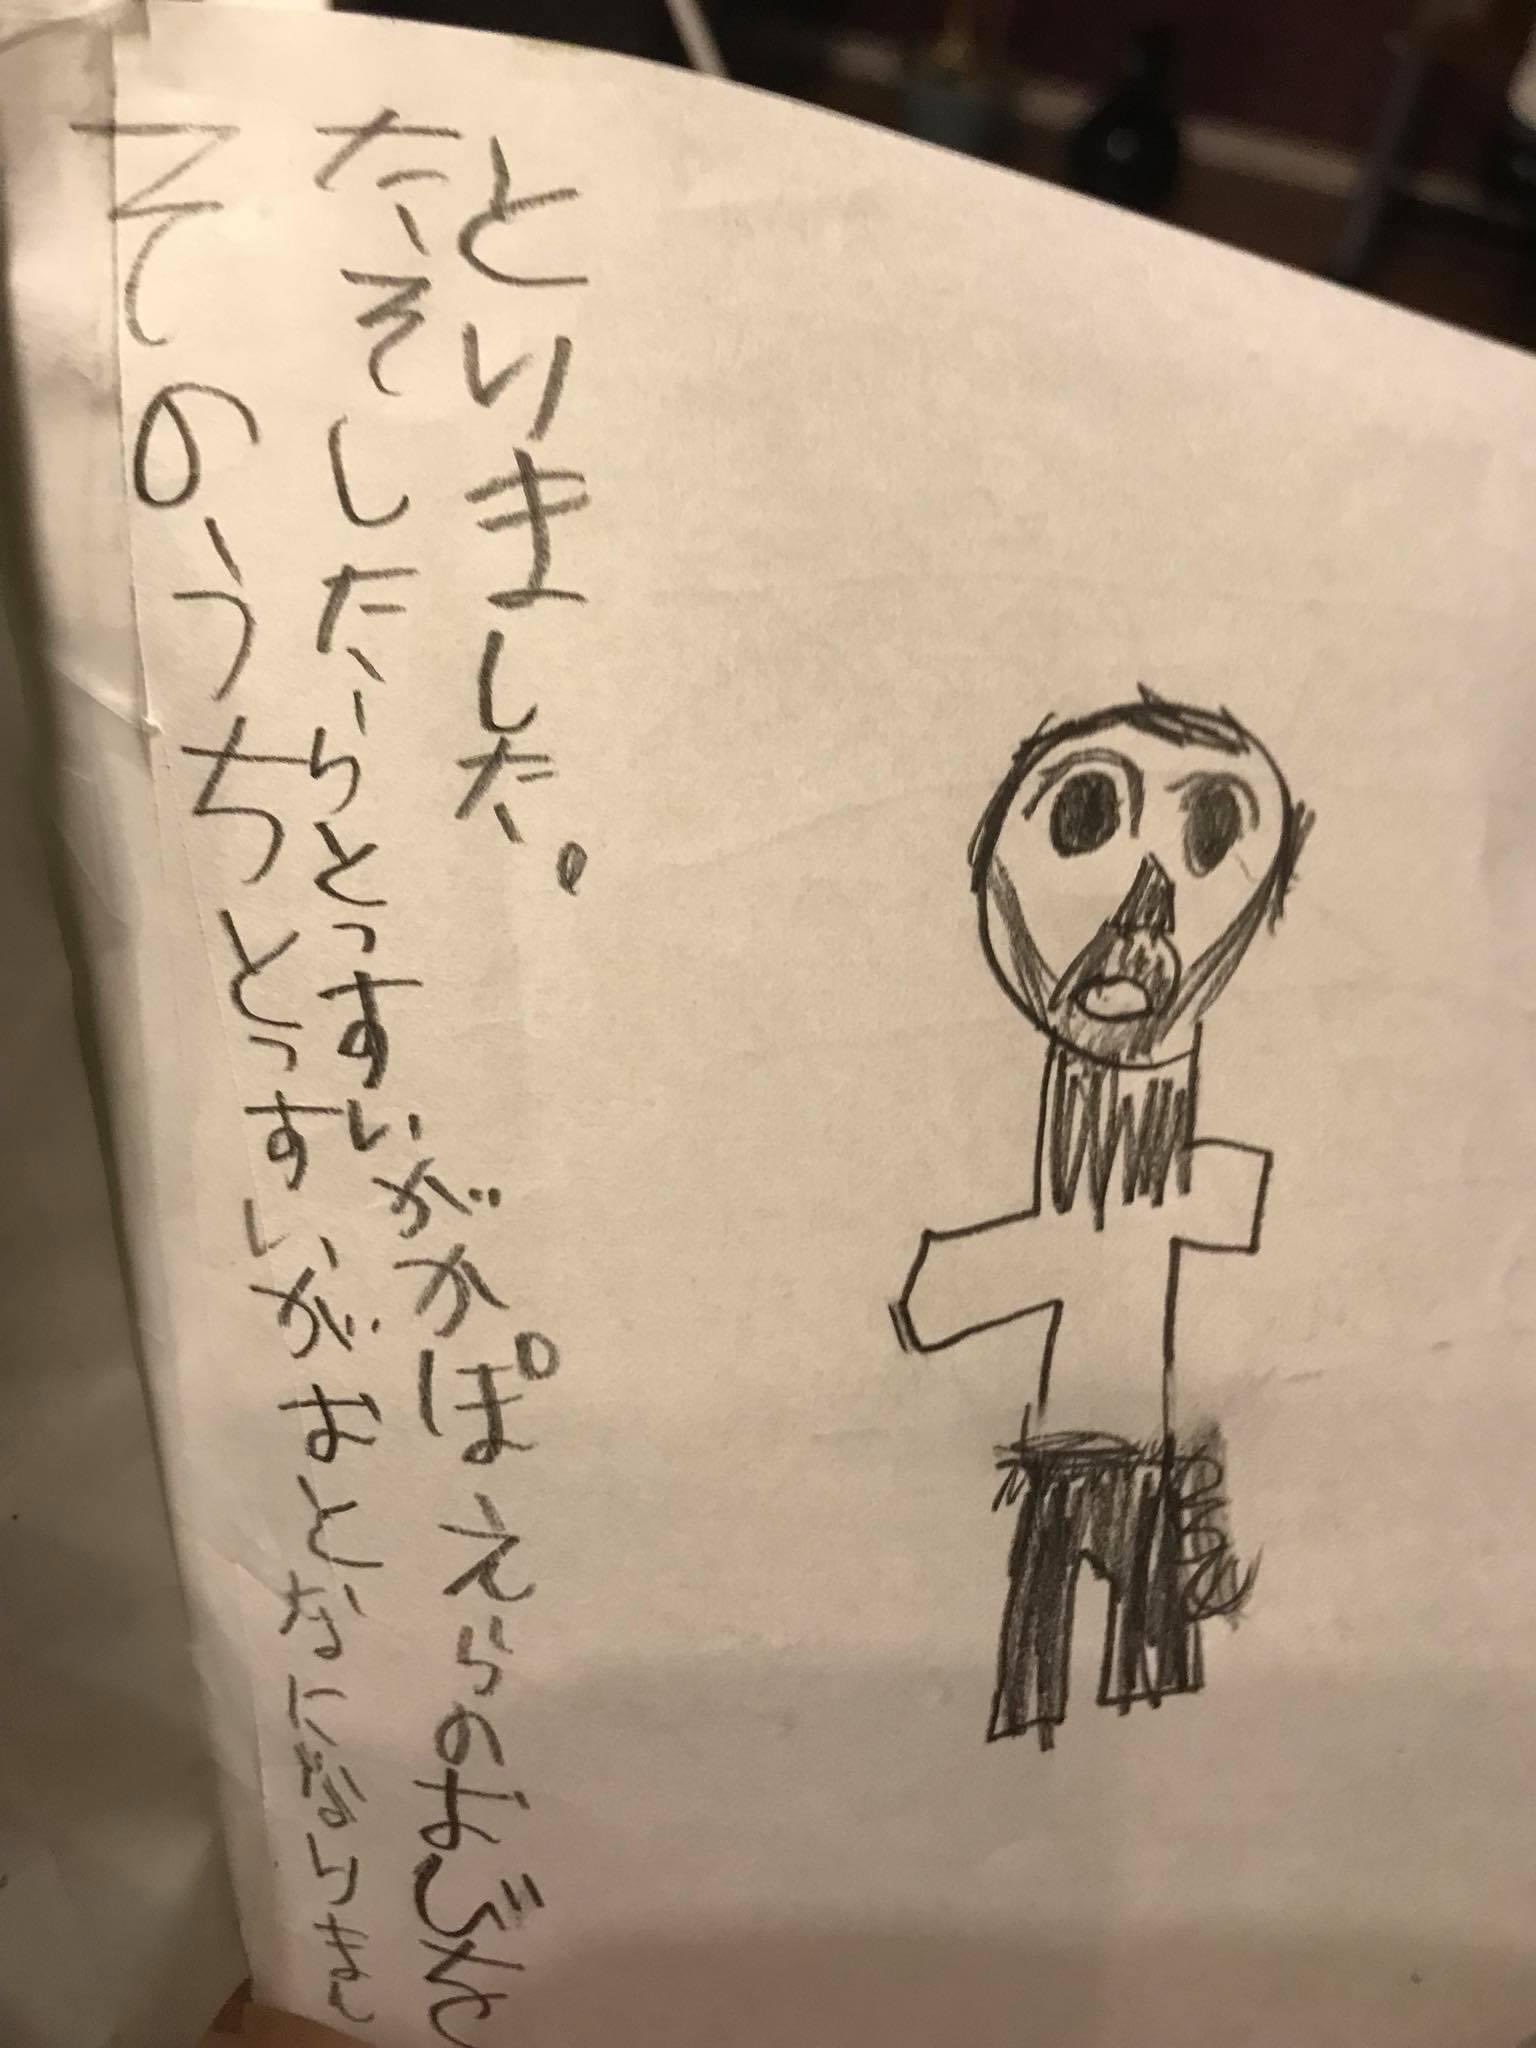 そのうちとっすいがおとなにならまし
たそしたらとっすいがかぽえらのおびを
とりました。